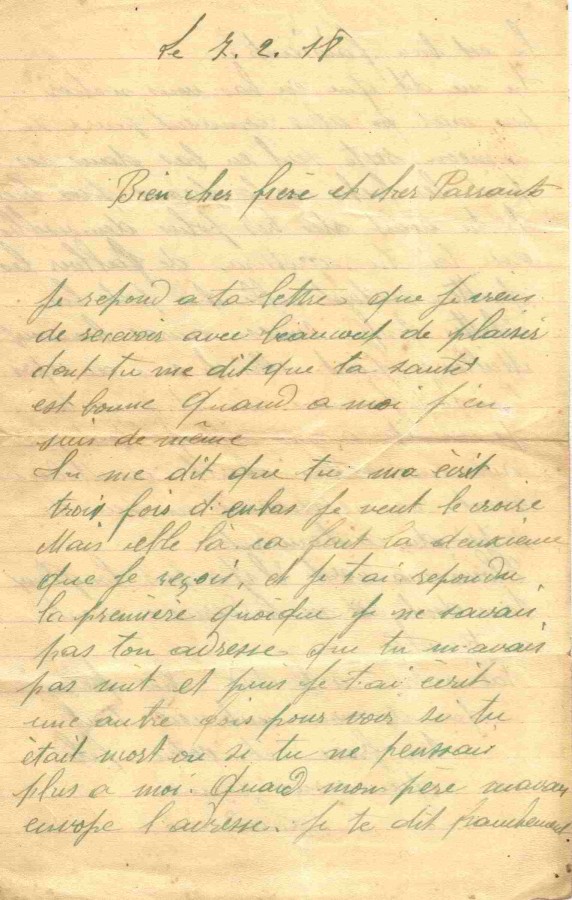 Le 7. 2. 18
Bien cher frère et cher Parrain
Je repond a ta lettre que je viens
de recevoir avec beaucoup de plaisir
dont tu me dit que ta santé
est bonne Quand a moi j'en
suis de même
Tu me dit que tu ma écrit
trois fois d'enbas je veut le croire
Mais celle là ca fait la deuxieme
que je reçois, et je t'ai repondu
la première quoique je ne savais
pas ton adresse que tu m'avais
pas mit et puis je t'ai écrit
une autre fois pour voir si tu
était mort ou si tu ne pensais
plus a moi. Quand mon père mavais
envope l'adresse. je te dit franchement